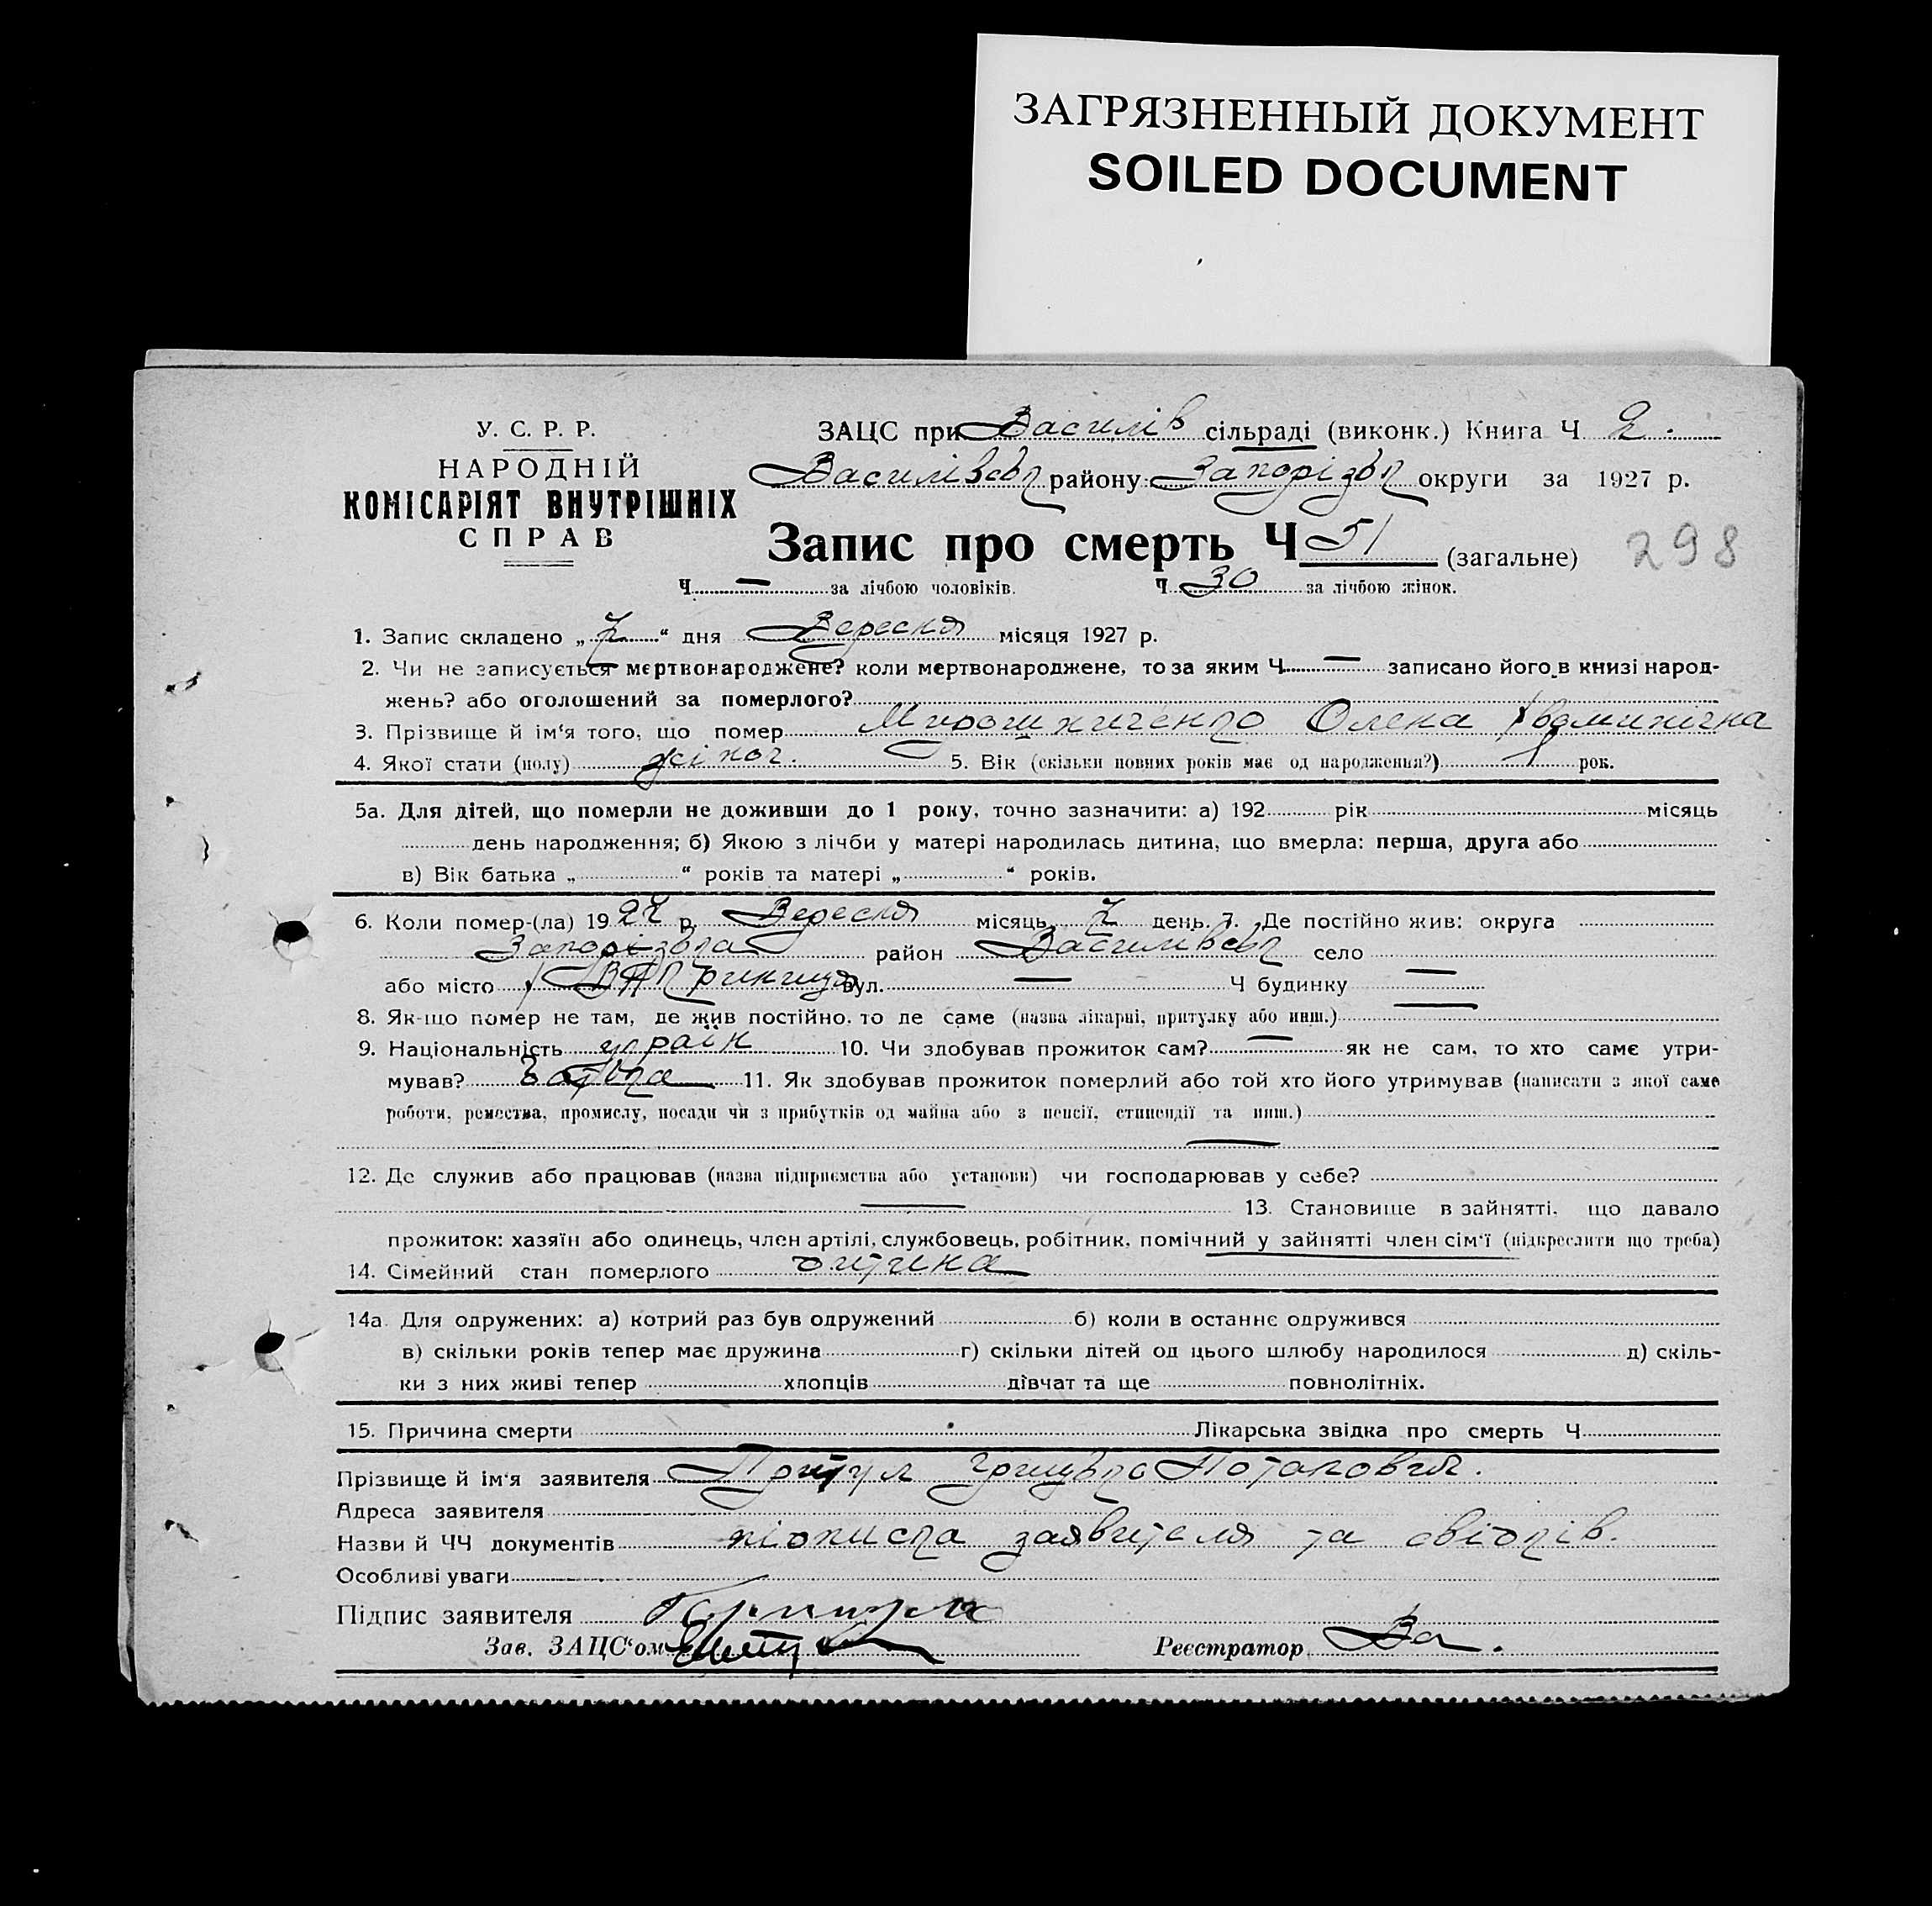 ЗАГРЯЗНЕННЫЙ ДОКУМЕНТ
SOILED DOCUMENT
У. С. Р. Р.
НАРОДНІЙ
КОМІСАРІЯТ ВНУТРІШНІХ
СПРАВ
ЗАЦС при Василів сільраді (виконк.) Книга Ч 2.
Василівськ району Запорізьк округи за 1927 р.
Запис про смерть Ч 51 (загальне)
298
Ч — за лічбою чоловіків. Ч 30 за лічбою жінок.
1. Запис складено „7“ дня Вересня місяця 1927 р.
2. Чи не записується мертвонароджене? коли мертвонароджене, то за яким Ч — записано його в книзі народ-
жень? або оголошений за померлого?
3. Прізвище й ім'я того, що помер Мирошниченко Олена
4. Якої стати (полу) жіноч. 5. Вік (скільки повних років має од народження?) 1 рок.
5а. Для дітей, що померли не доживши до 1 року, точно зазначити: а) 192 рік місяць
день народження; б) Якою з лічби у матері народилась дитина, що вмерла: перша, друга або
в) Вік батька „ “ років та матері „ “ років.
6. Коли помер-(ла) 1927 р. Вересня місяць 7 день. 7. Де постійно жив: округа
Запорізька район Василівськ село
або місто вул. — Ч будинку —
8. Як-що помер не там, де жив постійно, то де саме (назва лікарні, притулку або инш.) —
9. Національність україн 10. Чи здобував прожиток сам? — як не сам, то хто саме утри-
мував? Батько 11. Як здобував прожиток померлий або той хто його утримував (написати з якої саме
роботи, ремества, промислу, посади чи з прибутків од майна або з пенсії, стипендії та инш.)
—
12. Де служив або працював (назва підприємства або установи) чи господарював у себе?
— 13. Становище в зайнятті, що давало
прожиток: хазяїн або одинець, член артілі, службовець, робітник, помічний у зайнятті член сім'ї (підкреслити що треба)
14. Сімейний стан померлого дитина
14а. Для одружених: а) котрий раз був одружений б) коли в останнє одружився
в) скільки років тепер має дружина г) скільки дітей од цього шлюбу народилося д) скіль-
ки з них живі тепер хлопців дівчат та ще повнолітніх.
15. Причина смерти Лікарська звідка про смерть Ч
Прізвище й ім'я заявителя Притула Грицько Потапович.
Адреса заявителя
Назви й ЧЧ документів підписка заявителя та свідків.
Особливі уваги
Підпис заявителя
Зав. ЗАЦС'ом Реєстратор